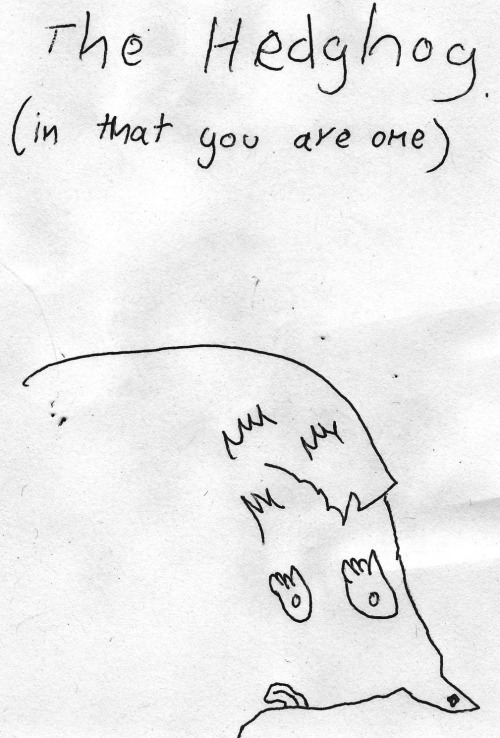 The Hedghog.
(in that you are one)